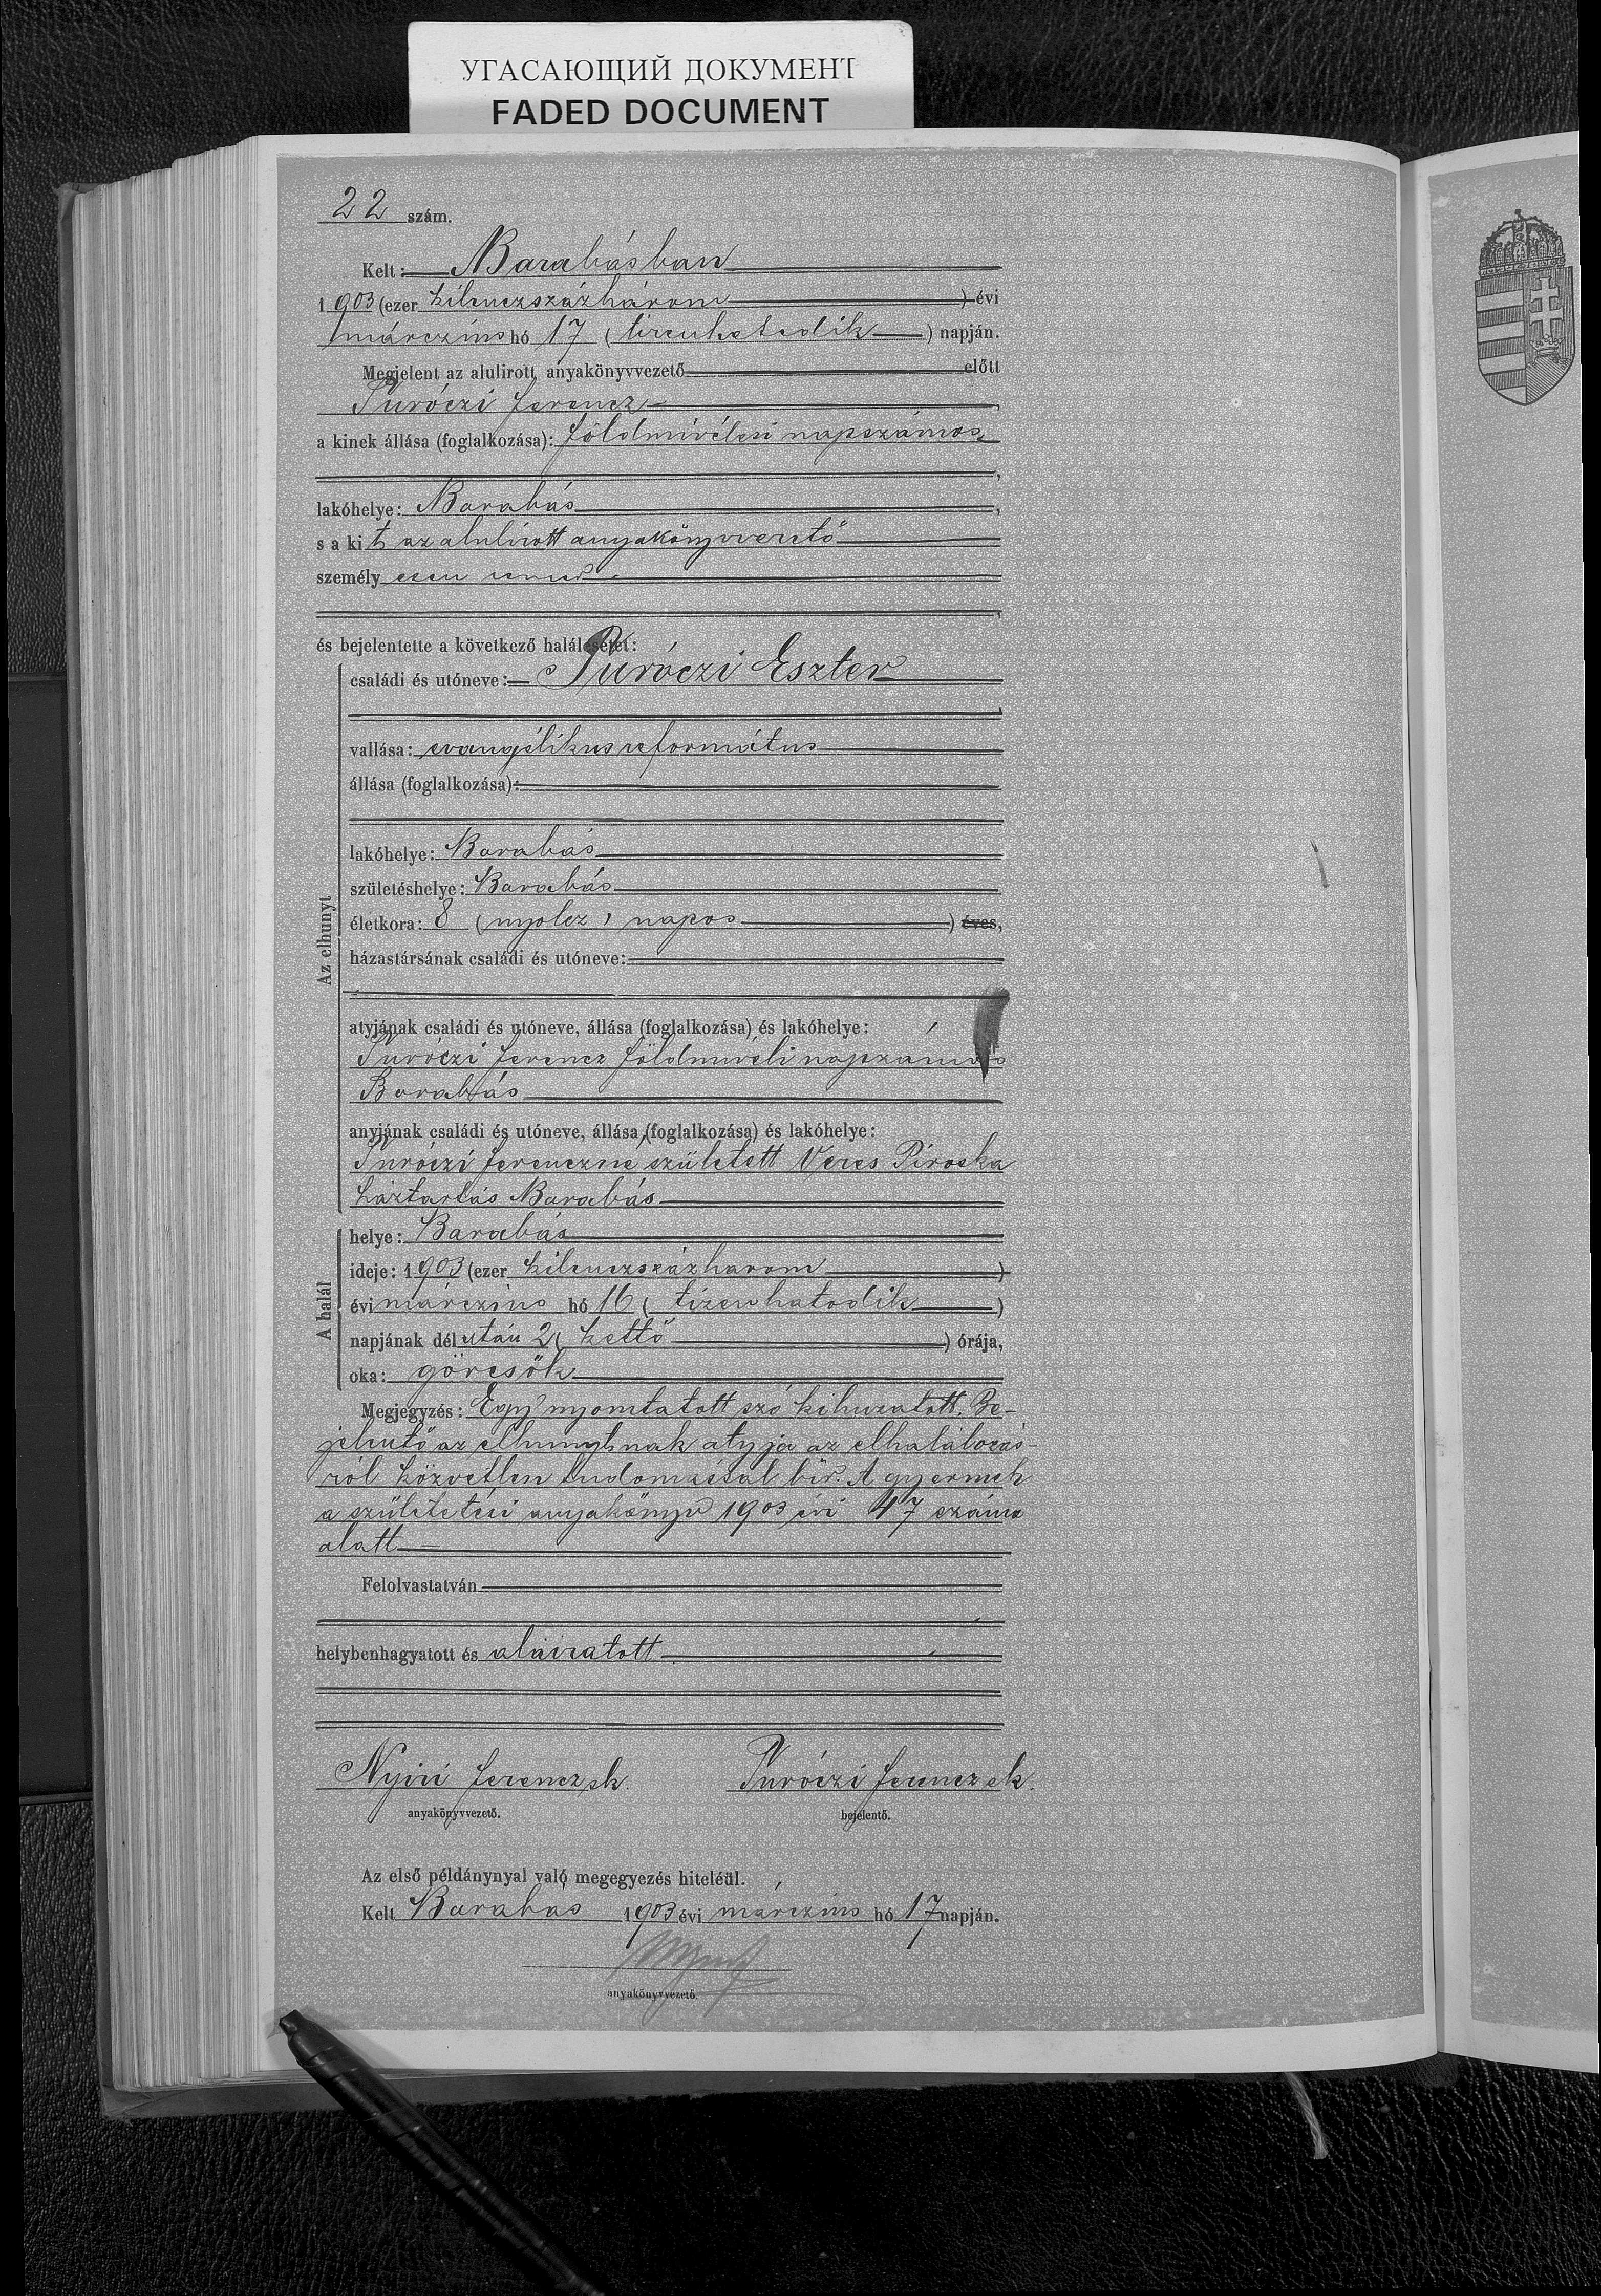 УГАСАЮЩИЙ ДОКУМЕНТ
FADED DOCUMENT
22 szám.
Kelt: Barabásban
1903 (ezer kilenczszázhárom) évi
márczius hó 17 (tizenhetedik) napján.
Megjelent az alulirott anyakönyvvezető előtt
Turóczi Ferencz,
a kinek állása (foglalkozása): földmivelési napszámos
lakóhelye: Barabás,
s a kit az alulirott anyakönyvvezető
személyesen ismer
és bejelentette a következő halálesetet:
Az elhunyt
családi és utóneve: Turóczi Eszter
vallása: evangélikus református
állása (foglalkozása):
lakóhelye: Barabás
születéshelye: Barabás
életkora: 8 (nyolcz) napos) éves,
házastársának családi és utóneve:
atyjának családi és utóneve, állása (foglalkozása) és lakóhelye:
Turóczi Ferencz földmiveli napszámos
Barabás
anyjának családi és utóneve, állása (foglalkozása) és lakóhelye:
Turóczi Ferenczné született Veres Piroska
háztartás Barabás
A halál
helye: Barabás
ideje: 1903 (ezer kilenczszázharom)
évi márczius hó 16 (tizenhatodik)
napjának délután 2 (kettő) órája,
oka: görcsök
Megjegyzés: Egy nyomtatott szó kihuzatott. Be-
jelentő az elhunytnak atyja az elhalálozás-
ról közvetlen tudomással bir. A gyermek
a születési anyakönyv 1903 évi 47 száma
alatt
Felolvastatván
helybenhagyatott és aláiratott
Nyiri Ferencz sk. Turóczi Ferencz sk.
anyakönyvvezető. bejelentő.
Az első példánynyal való megegyezés hiteléül.
Kelt Barabás 1903 évi márczius hó 17 napján.
anyakönyvvezető